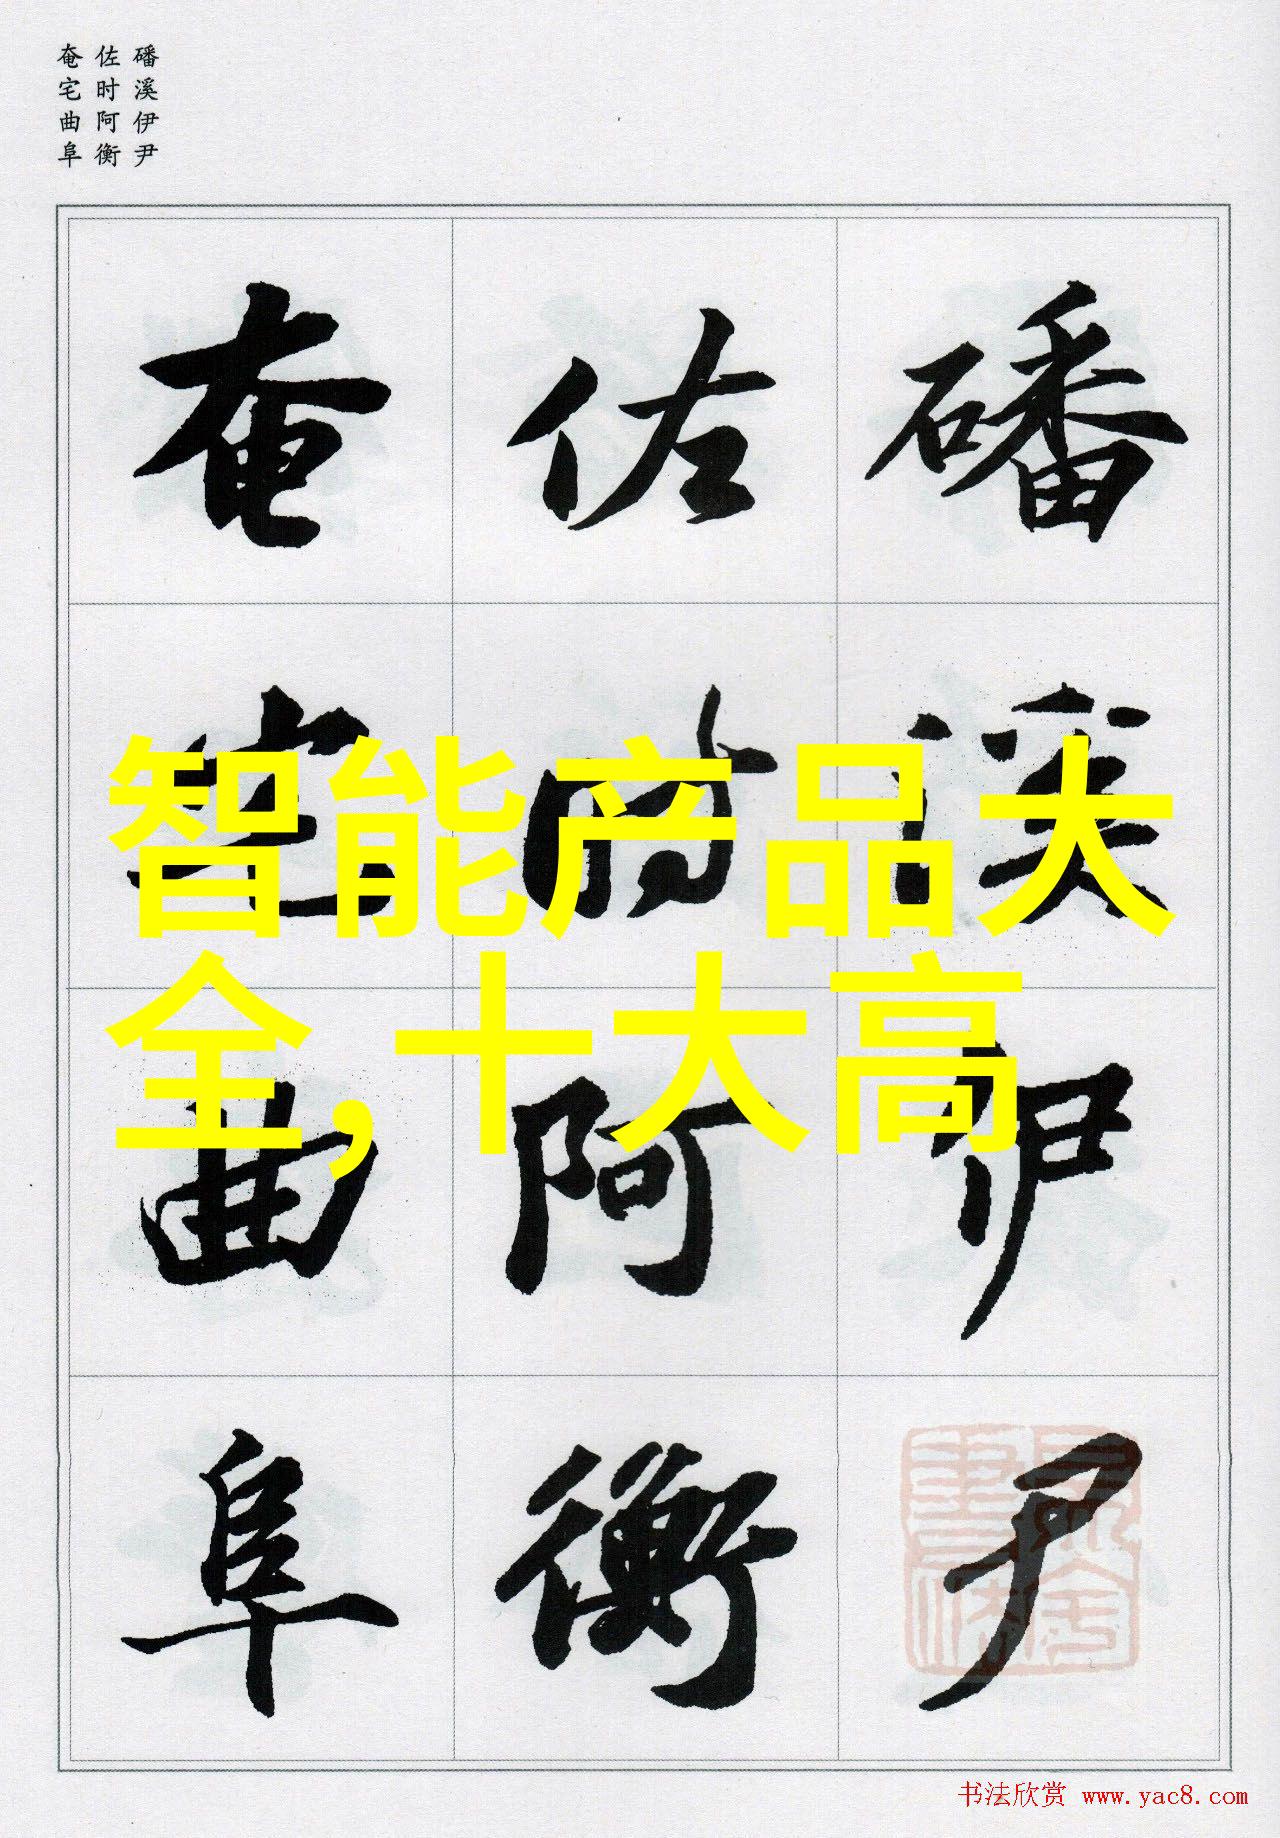 磻溪伊尹
佐时阿衡
奄宅曲阜
磻溪伊尹
佐时阿衡
奄宅曲阜
智能产品大
全,十大高
书法欣赏 www.yac8.com